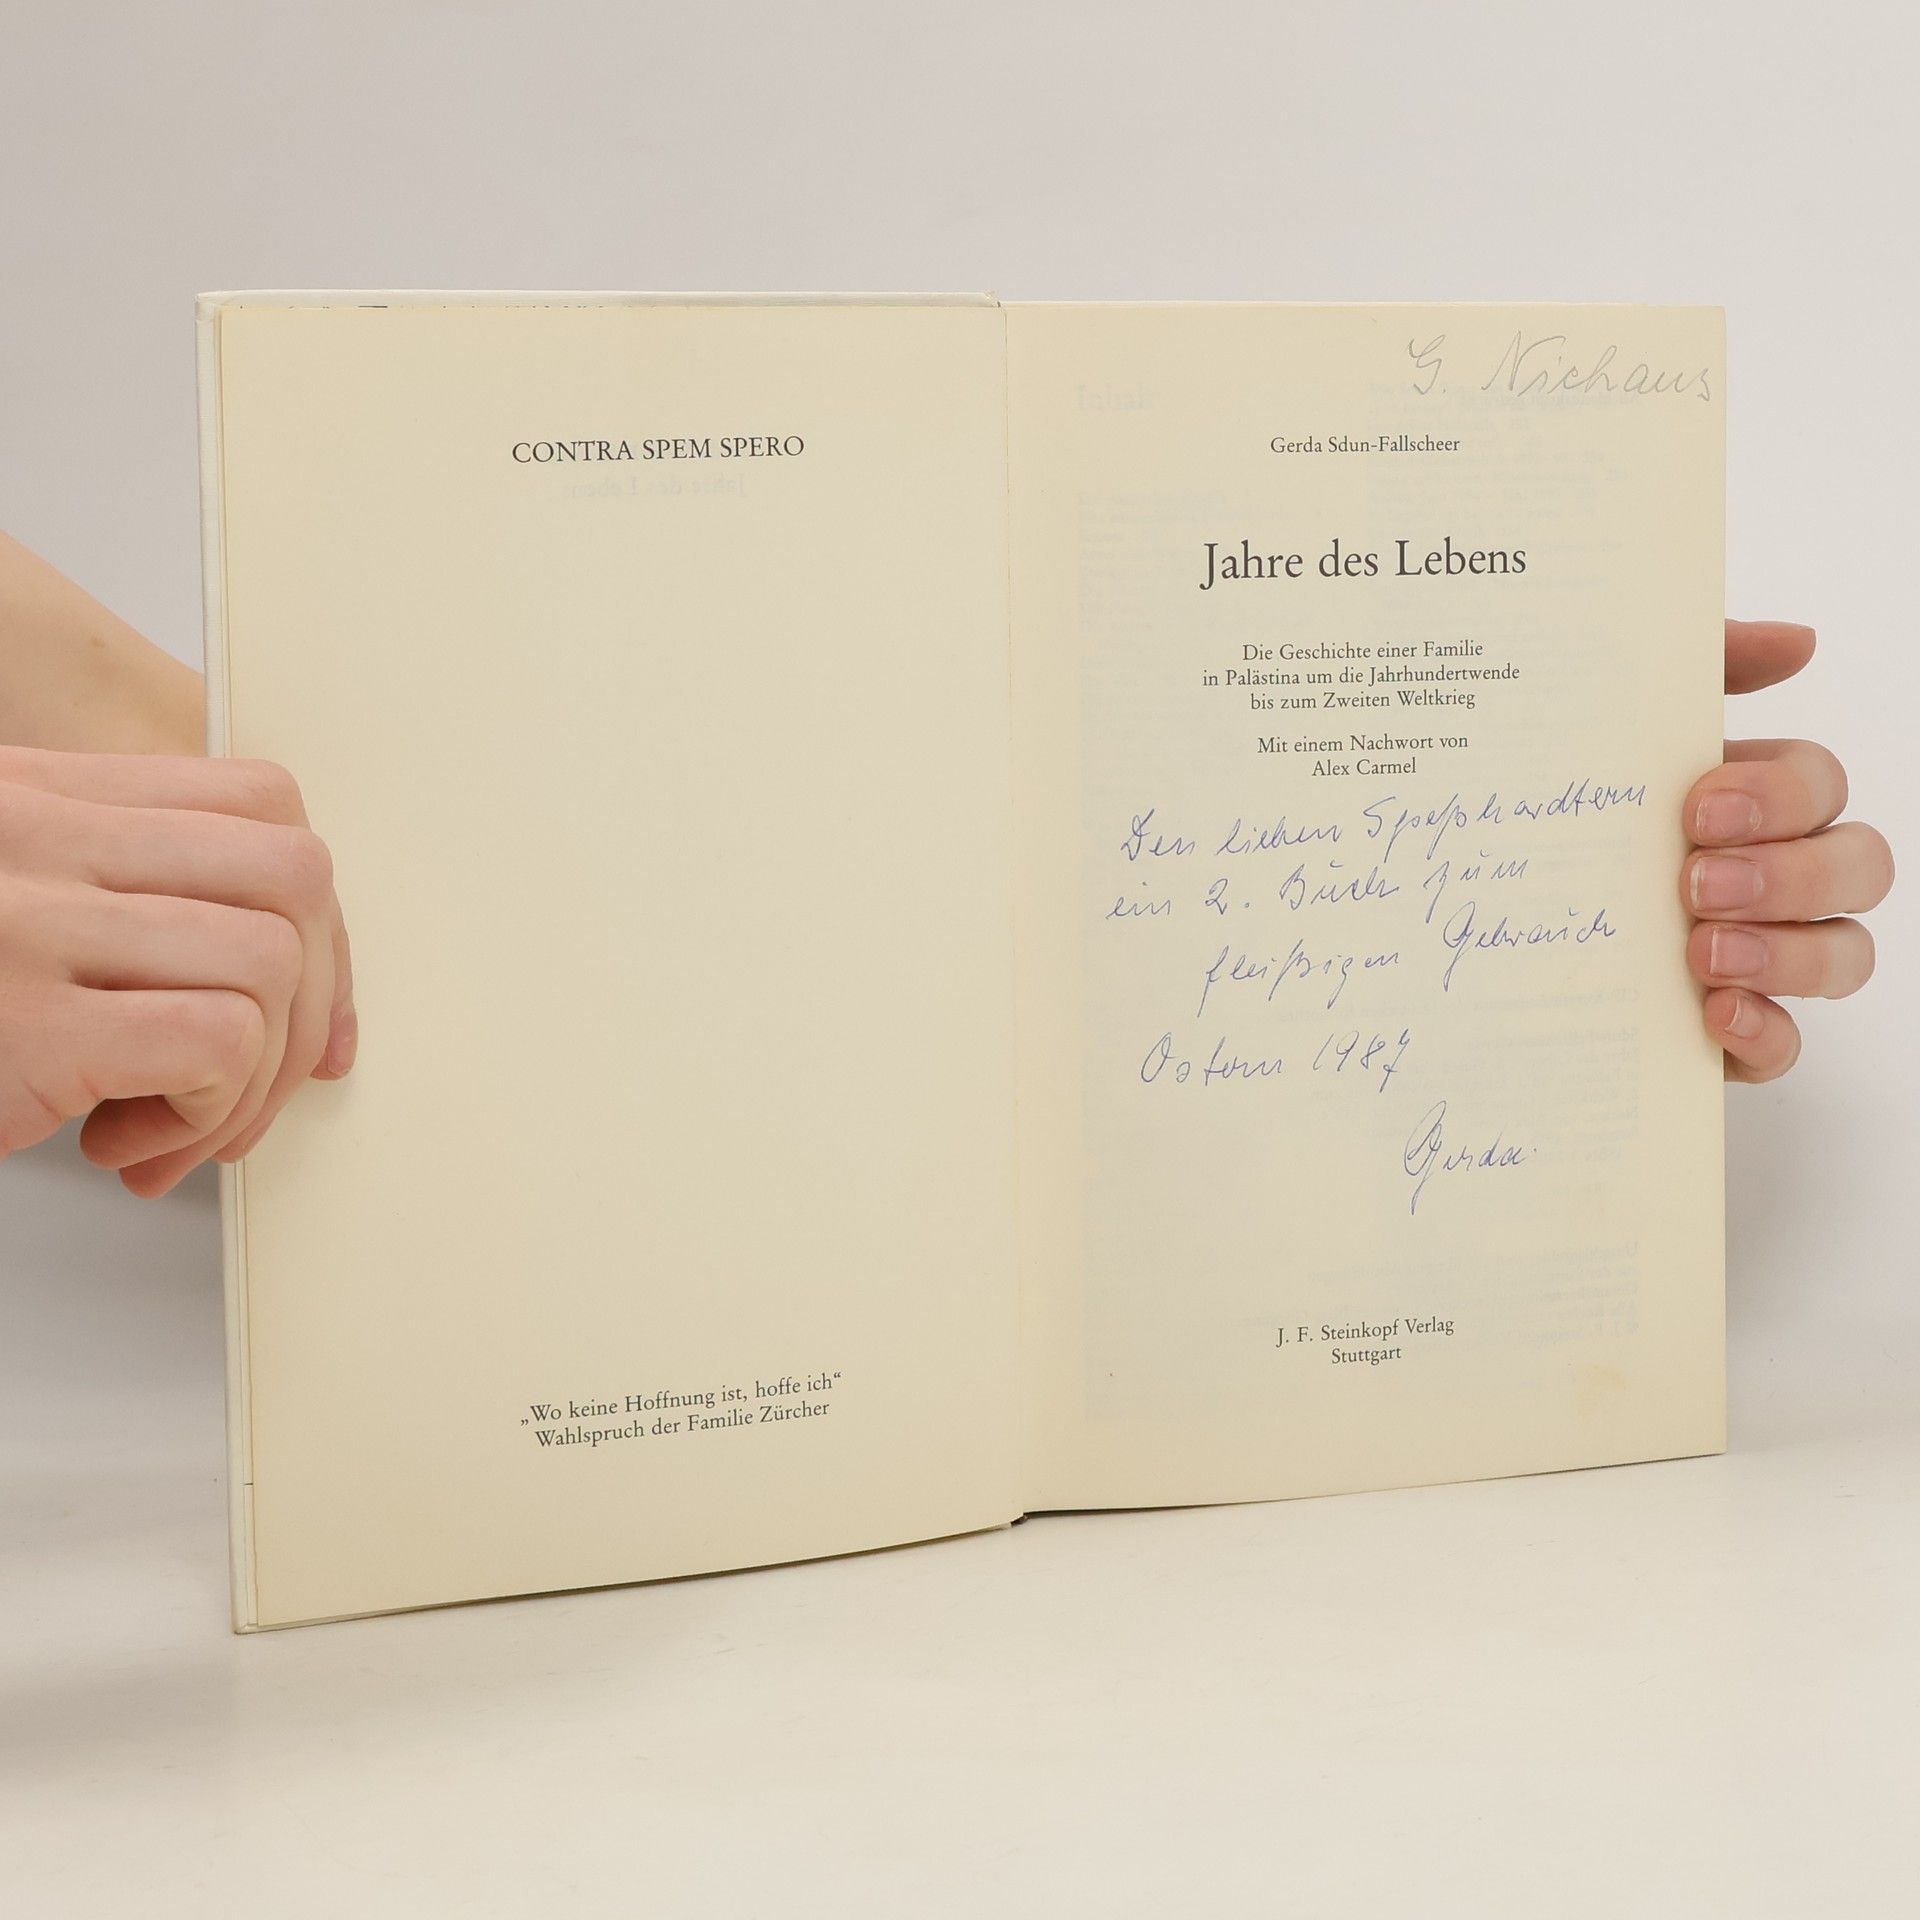 CONTRA SPEM SPERO
„Wo keine Hoffnung ist, hoffe ich“
Wahlspruch der Familie Zürcher
G. Niehaus
Gerda Sdun-Fallscheer
Jahre des Lebens
Die Geschichte einer Familie
in Palästina um die Jahrhundertwende
bis zum Zweiten Weltkrieg
Mit einem Nachwort von
Alex Carmel
Den lieben Speßhardtern
ein 2. Buch zum
fleißigen Gebrauch
Ostern 1987
Gerda.
J. F. Steinkopf Verlag
Stuttgart